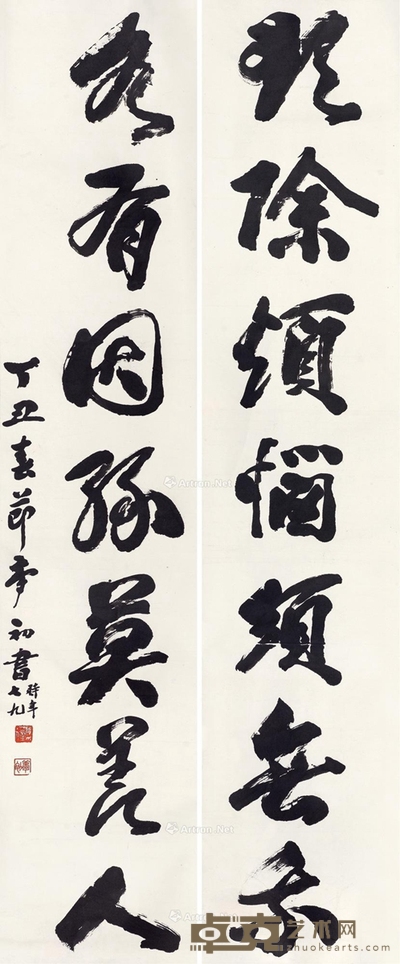 欲除煩惱須無我
各有因緣莫羨人
丁丑春節
初書
時年七九
Artron.Net
Artron.Net
Artron.Net
Artron.Net
卓克艺术网
zhuokearts.com